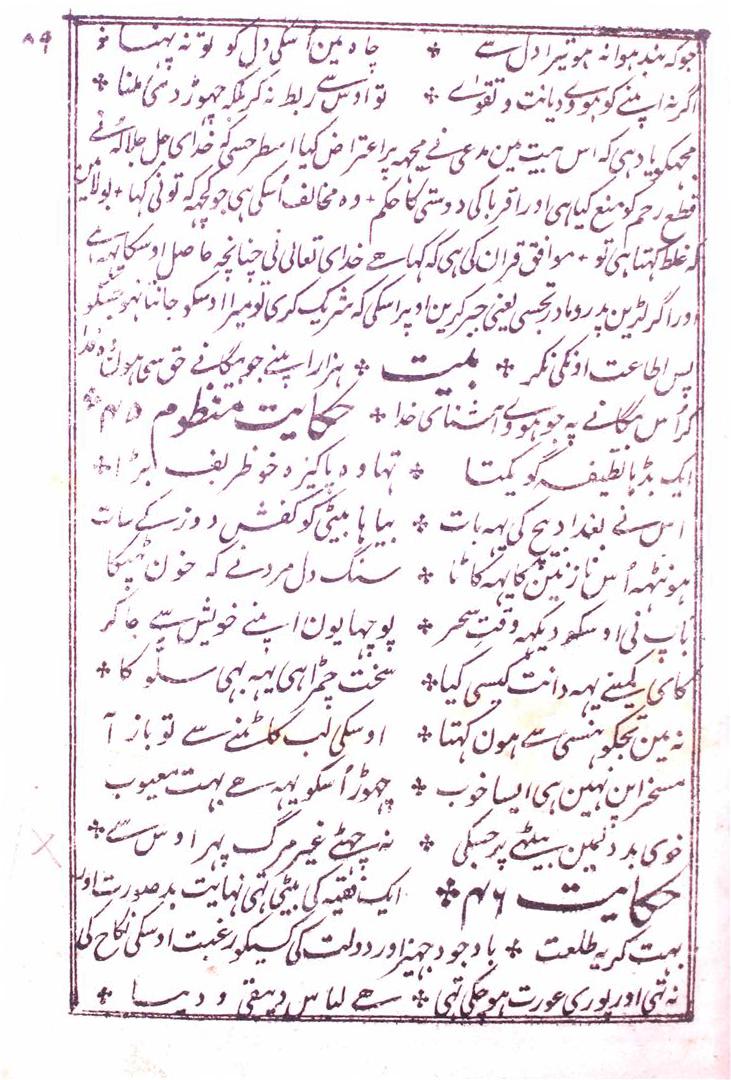 ۸۹
جو کہ بند ہوا نہ ہو تیرا دل سے ❊ چاہ مین اُسکی دل کو تو نہ پھنسا ❊
اگر نہ اپنے کو ہووے دیانت و تقواے ❊ تو اوس سے ربط نہ کر بلکہ چھوڑ دی ملنا ❊
مجھکو یاد ہی کہ اس بیت مین مدعی نے مجھہ پر اعتراض کیا اسطرحسی کہ خدای جل جلالہ نے
قطع رحم کو منع کیا ہی اور اقربا کی دوستی کا حکم ٭ وہ مخالف اُسکی ہی جو کچھہ کہ تونی کہا ٭ بولا مین
کہ غلط کہتا ہی تو ٭ موافق قران کی ہی کہ کہا ہے خدای تعالی نی چنانچہ حاصل اوسکا یہہ ہے
اور اگر لڑین پدر و مادر تجسی یعنی جبر کرین اوپر اسکی کہ شریک کری تو میرا اوسکو جانتا نہو جسکو
پس اطاعت اونکی نکر ❊ بیت ❊ ہزار اپنے جو بیگانے حق سی ہون
کر اُس بیگانے پہ جو ہووے آشنای خدا ❊ حکایت منظوم ۴۵ ❊
ایک بڈہا لطیفہ گو یکتا ❊ تہا وہ پاکیزہ خو ظریف بڑا ❊
اس نے بغداد بیچ کی یہہ بات ❊ بیاہا بیٹی کو کفش دوز کے سات
ہونٹہہ اُس نازنین کا یہہ کاٹا ❊ سنگ دل مرد نے کہ خون ٹپکا
باپ نی اوسکو دیکھہ وقت سحر ❊ پوچہا یون اپنے خویش سے جاکر
کای کمینے یہہ دانت کیسی کیا ❊ سخت چمڑا ہی یہہ بہی سلّو کا ❊
نہ مین تجکو ہنسی سے ہون کہتا ❊ اوسکی لب کاٹنے سے تو باز آ
مسخراپن نہین ہی ایسا خوب ❊ چھوڑ اُسکو یہہ ہے بہت معیوب
خوی بد ذہن مین بیٹھے پر جسکی ❊ نہ چھٹے غیر مرگ پہر اوس سے ❊
حکایت ۴۶ ❊ ایک فقیہ کی بیٹی تہی نہایت بد صورت اور
بہت کریہ طلعت ❊ باوجود جہیز اور دولت کی کسیکو رغبت اوسکی نکاح کی
نہ تہی اور پوری عورت ہو چکی تہی ❊ ہے لباس دبیقی و دیبا ❊